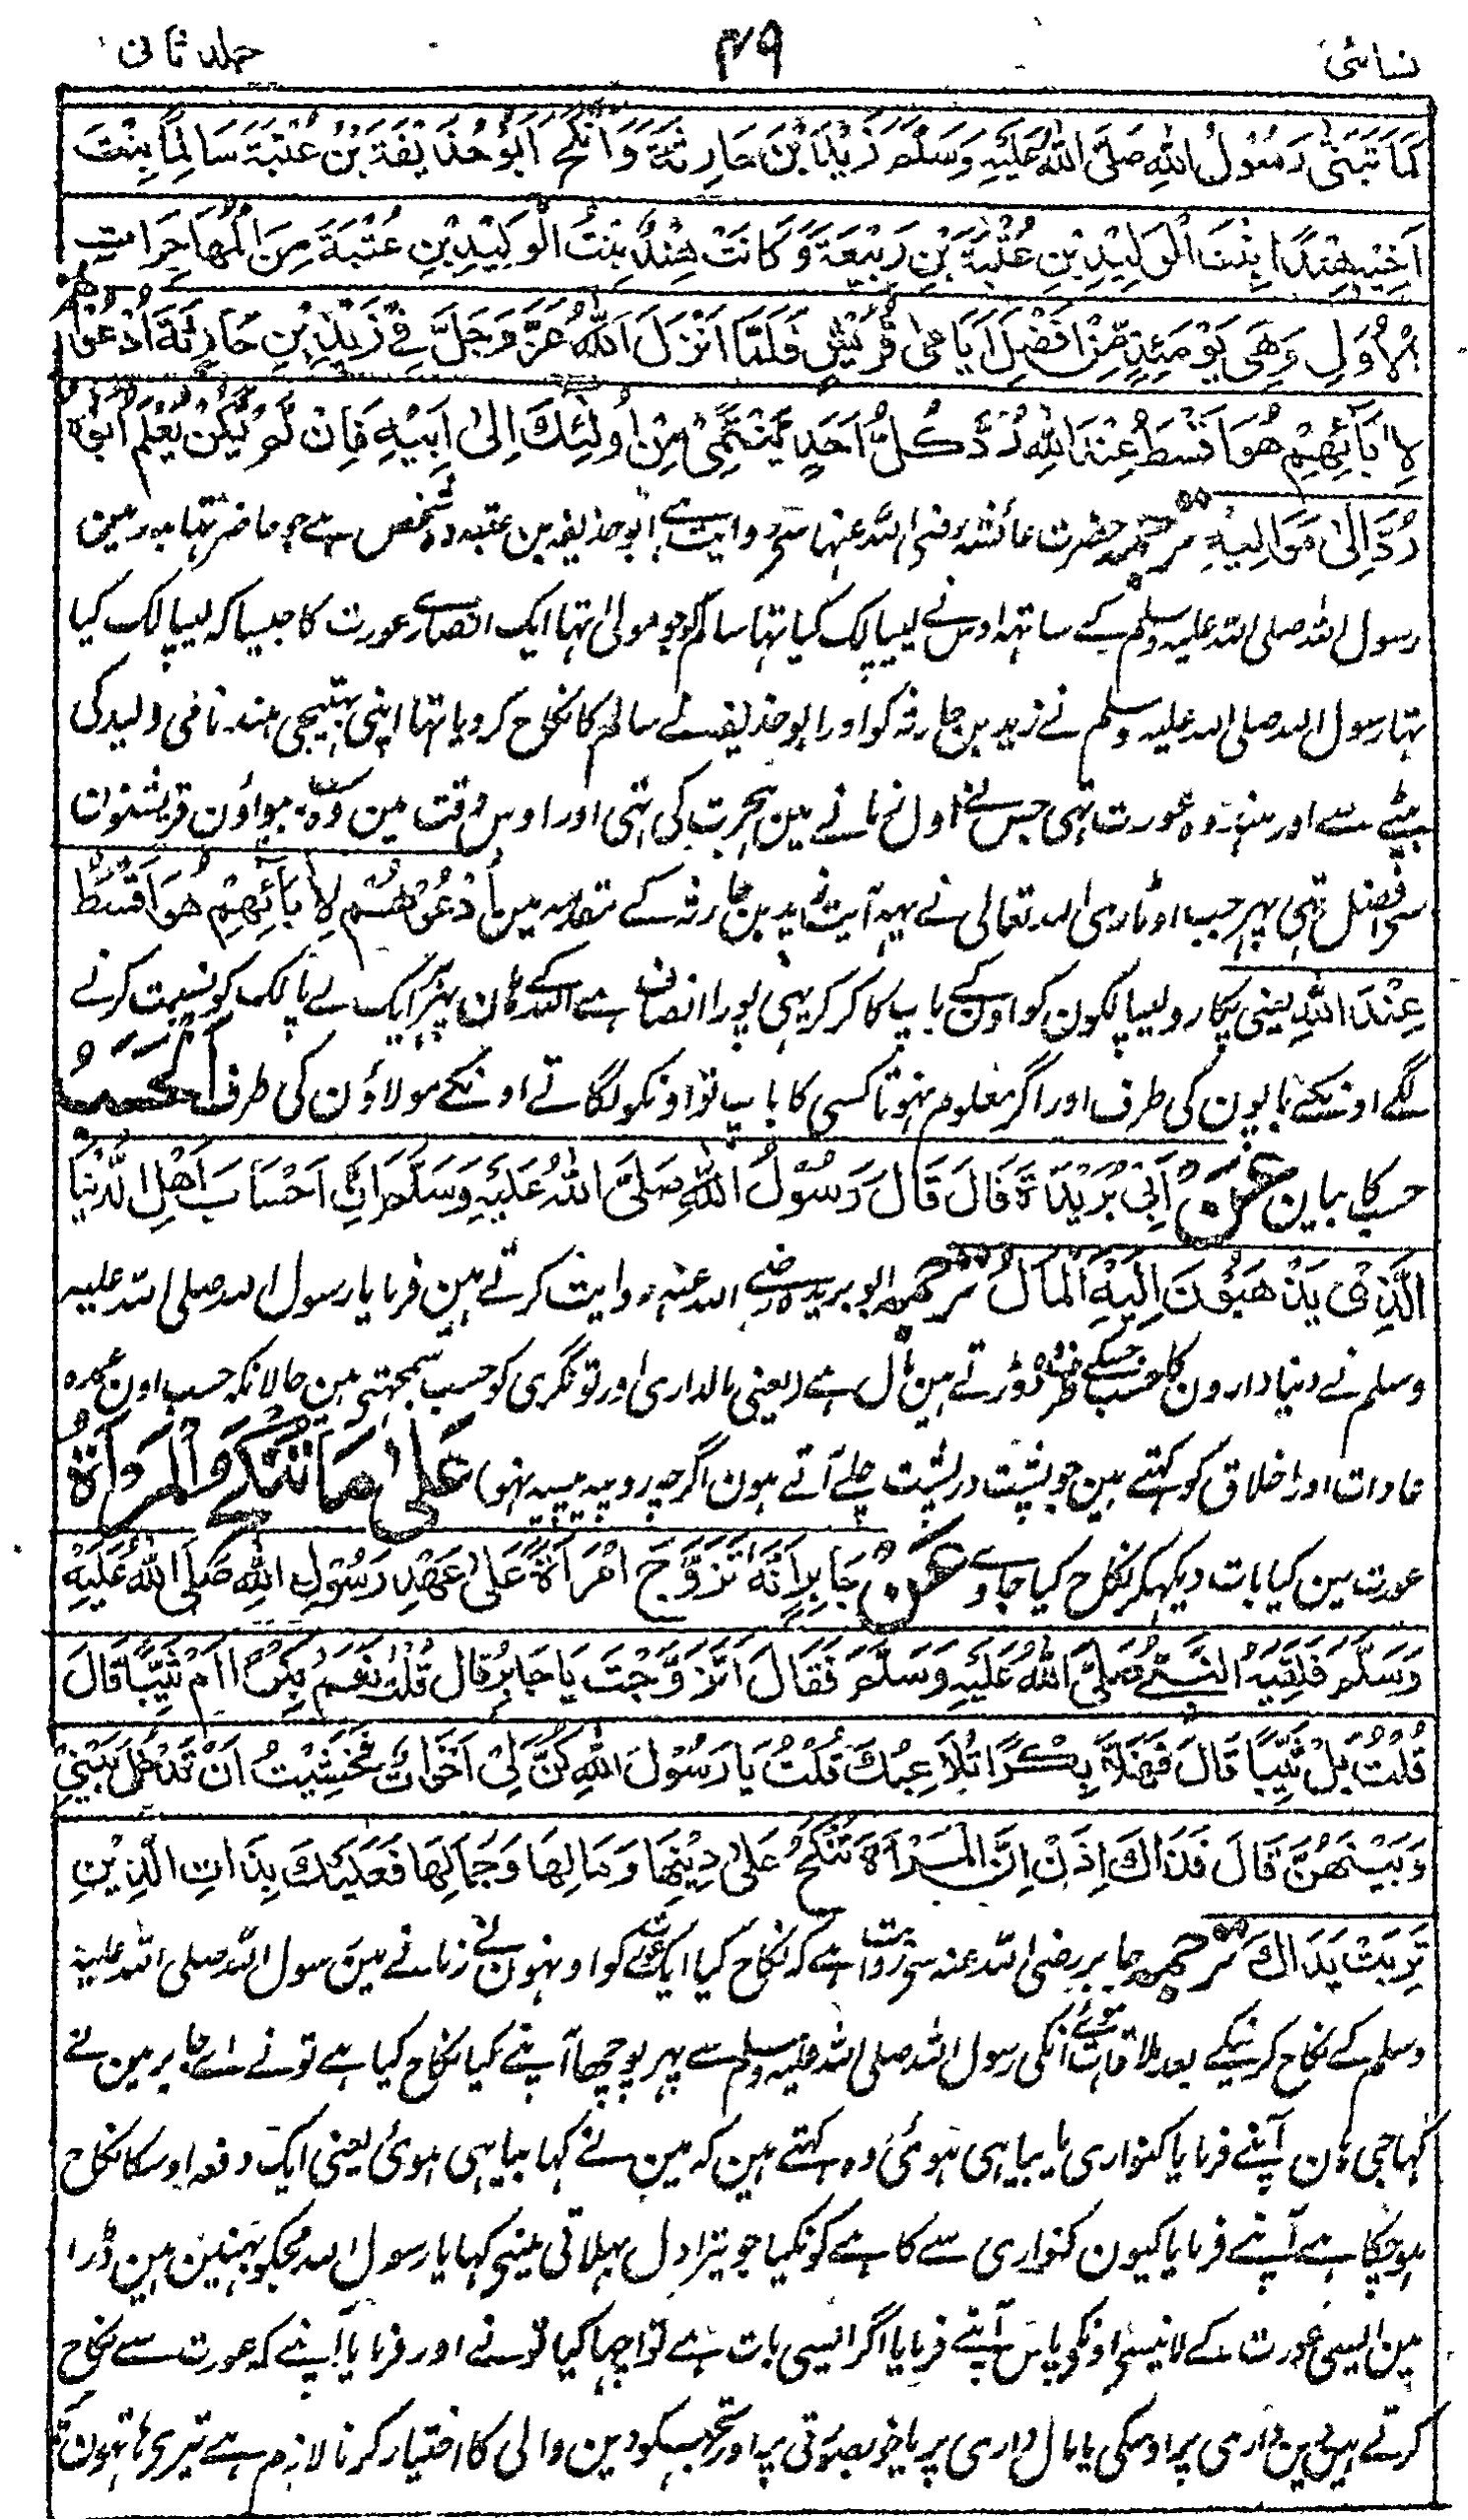 نسائی ۴۹ جلد ثانی
كَمَا تَبَنّٰى رَسُوْلُ اللّٰهِ صَلَّى اللّٰهُ عَلَيْهِ وَسَلَّمَ زَيْدَ بْنَ حَارِثَةَ وَاَنْكَحَ اَبُوْ حُذَيْفَةَ بْنُ عُتْبَةَ سَالِمًا بِنْتَ
اَخِيْهِ هِنْدًا بِنْتَ الْوَلِيْدِ بْنِ عُتْبَةَ بْنِ رَبِيْعَةَ وَكَانَتْ هِنْدٌ بِنْتُ الْوَلِيْدِ بْنِ عُتْبَةَ مِنَ الْمُهَاجِرَاتِ
الْاُوَلِ وَهِىَ يَوْمَئِذٍ مِّنْ اَفْضَلِ اَيَامٰى قُرَيْشٍ فَلَمَّا اَنْزَلَ اللّٰهُ عَزَّ وَجَلَّ فِىْ زَيْدِ بْنِ حَارِثَةَ اُدْعُوْهُمْ
لِاٰبَآئِهِمْ هُوَ اَقْسَطُ عِنْدَ اللّٰهِ رُدَّ كُلُّ اَحَدٍ يَّنْتَمِىْ مِنْ اُولٰئِكَ اِلٰى اَبِيْهِ فَاِنْ لَّمْ يَكُنْ يُعْلَمُ اَبُوْهُ
رُدَّ اِلٰى مَوَالِيْهِ ترجمہ حضرت عائشہ رضی اللہ عنہا سے روایت ہے ابو حذیفہ بن عتبہ وہ شخص ہے جو حاضر تہا بدر مین
رسول اللہ صلی اللہ علیہ وسلم کے ساتہہ اوس نے لیپالک کیا تہا سالم کو جو مولیٰ تہا ایک انصاری عورت کا جیسا کہ لیپالک کیا
تہا رسول اللہ صلی اللہ علیہ وسلم نے زید بن حارثہ کو اور ابو حذیفہ نے سالم کا نکاح کر دیا تہا اپنی بہتیجی ہند نامی ولید کی
بیٹی سے اور ہند وہ عورت تہی جس نے اول زمانے مین ہجرت کی تہی اور اوس وقت مین وہ بیواؤن قریشنون
سے افضل تہی پہر جب اوتاری اللہ تعالی نے یہہ آیت زید بن حارثہ کے مقدمہ مین اُدْعُوْهُمْ لِاٰبَآئِهِمْ هُوَ اَقْسَطُ
عِنْدَ اللّٰهِ یعنی پکارو لیپالکون کو اون کے باپ کا کر کر یہی پورا انصاف ہے اللہ کے ہان پہر ہر ایک لے پالک کو نسبت کرنے
لگے اونکے باپون کی طرف اور اگر معلوم نہوتا کسی کا باپ تو اونکو لگاتے اونکے مولاؤن کی طرف اَلْحَسَبُ
حسب کا بیان عَنْ اَبِىْ بُرَيْدَةَ قَالَ قَالَ رَسُوْلُ اللّٰهِ صَلَّى اللّٰهُ عَلَيْهِ وَسَلَّمَ اِنَّ اَحْسَابَ اَهْلِ الدُّنْيَا
الَّذِىْ يَذْهَبُوْنَ اِلَيْهِ الْمَالُ ترجمہ ابو بریدہ رضی اللہ عنہ روایت کرتے ہین فرمایا رسول اللہ صلی اللہ علیہ
وسلم نے دنیا دارون کا حسب جسکی طرف دوڑتے ہین مال ہے (یعنی مالداری اور تونگری کو حسب سمجہتے ہین حالانکہ حسب اون عمدہ
عادات اور اخلاق کو کہتے ہین جو پشت در پشت چلے آتے ہون اگرچہ روپیہ پیسہ نہو) عَلٰى مَا تُنْكَحُ الْمَرْاَةُ
عورت مین کیا بات دیکہکر نکاح کیا جاوے عَنْ جَابِرٍ اَنَّهُ تَزَوَّجَ امْرَاَةً عَلٰى عَهْدِ رَسُوْلِ اللّٰهِ صَلَّى اللّٰهُ عَلَيْهِ
وَسَلَّمَ فَلَقِيَهُ النَّبِىُّ صَلَّى اللّٰهُ عَلَيْهِ وَسَلَّمَ فَقَالَ اَتَزَوَّجْتَ يَا جَابِرُ قَالَ قُلْتُ نَعَمْ بِكْرًا اَمْ ثَيِّبًا قَالَ
قُلْتُ بَلْ ثَيِّبًا قَالَ فَهَلَّا بِكْرًا تُلَاعِبُكَ قُلْتُ يَا رَسُوْلَ اللّٰهِ كُنَّ لِىْ اَخَوَاتٌ فَخَشِيْتُ اَنْ تَدْخُلَ بَيْنِىْ
وَبَيْنَهُنَّ قَالَ فَذَاكَ اِذَنْ اِنَّ الْمَرْاَةَ تُنْكَحُ عَلٰى دِيْنِهَا وَمَالِهَا وَجَمَالِهَا فَعَلَيْكَ بِذَاتِ الدِّيْنِ
تَرِبَتْ يَدَاكَ ترجمہ جابر رضی اللہ عنہ سے روایت ہے کہ نکاح کیا ایک عورت کو اونہون نے زمانے مین رسول اللہ صلی اللہ علیہ
وسلم کے نکاح کرنیکے بعد ملاقات ہوئے انکی رسول اللہ صلی اللہ علیہ وسلم سے پہر پوچہا آپنے کیا نکاح کیا ہے تو نے اے جابر مین نے
کہا جی ہان آپنے فرمایا کنواری یا بیاہی ہوئی وہ کہتے ہین کہ مین نے کہا بیاہی ہوئی یعنی ایک دفعہ اوسکا نکاح
ہوچکا ہے آپنے فرمایا کیون کنواری سے کاہے کو نکیا جو تیرا دل بہلاتی مینے کہا یا رسول اللہ مجکو بہنین ہین ڈرا
مین ایسی عورت کے لانیسے اونکو پاس آپنے فرمایا اگر ایسی بات ہے تو اچہا کیا تونے اور فرمایا آپنے کہ عورت سے نکاح
کرتے ہین دین داری پر اوسکی یا مال داری پر یا خوبصورتی پر اور تجہکو دین والی کا اختیار کرنا لازم ہے تیری ہاتہون کو